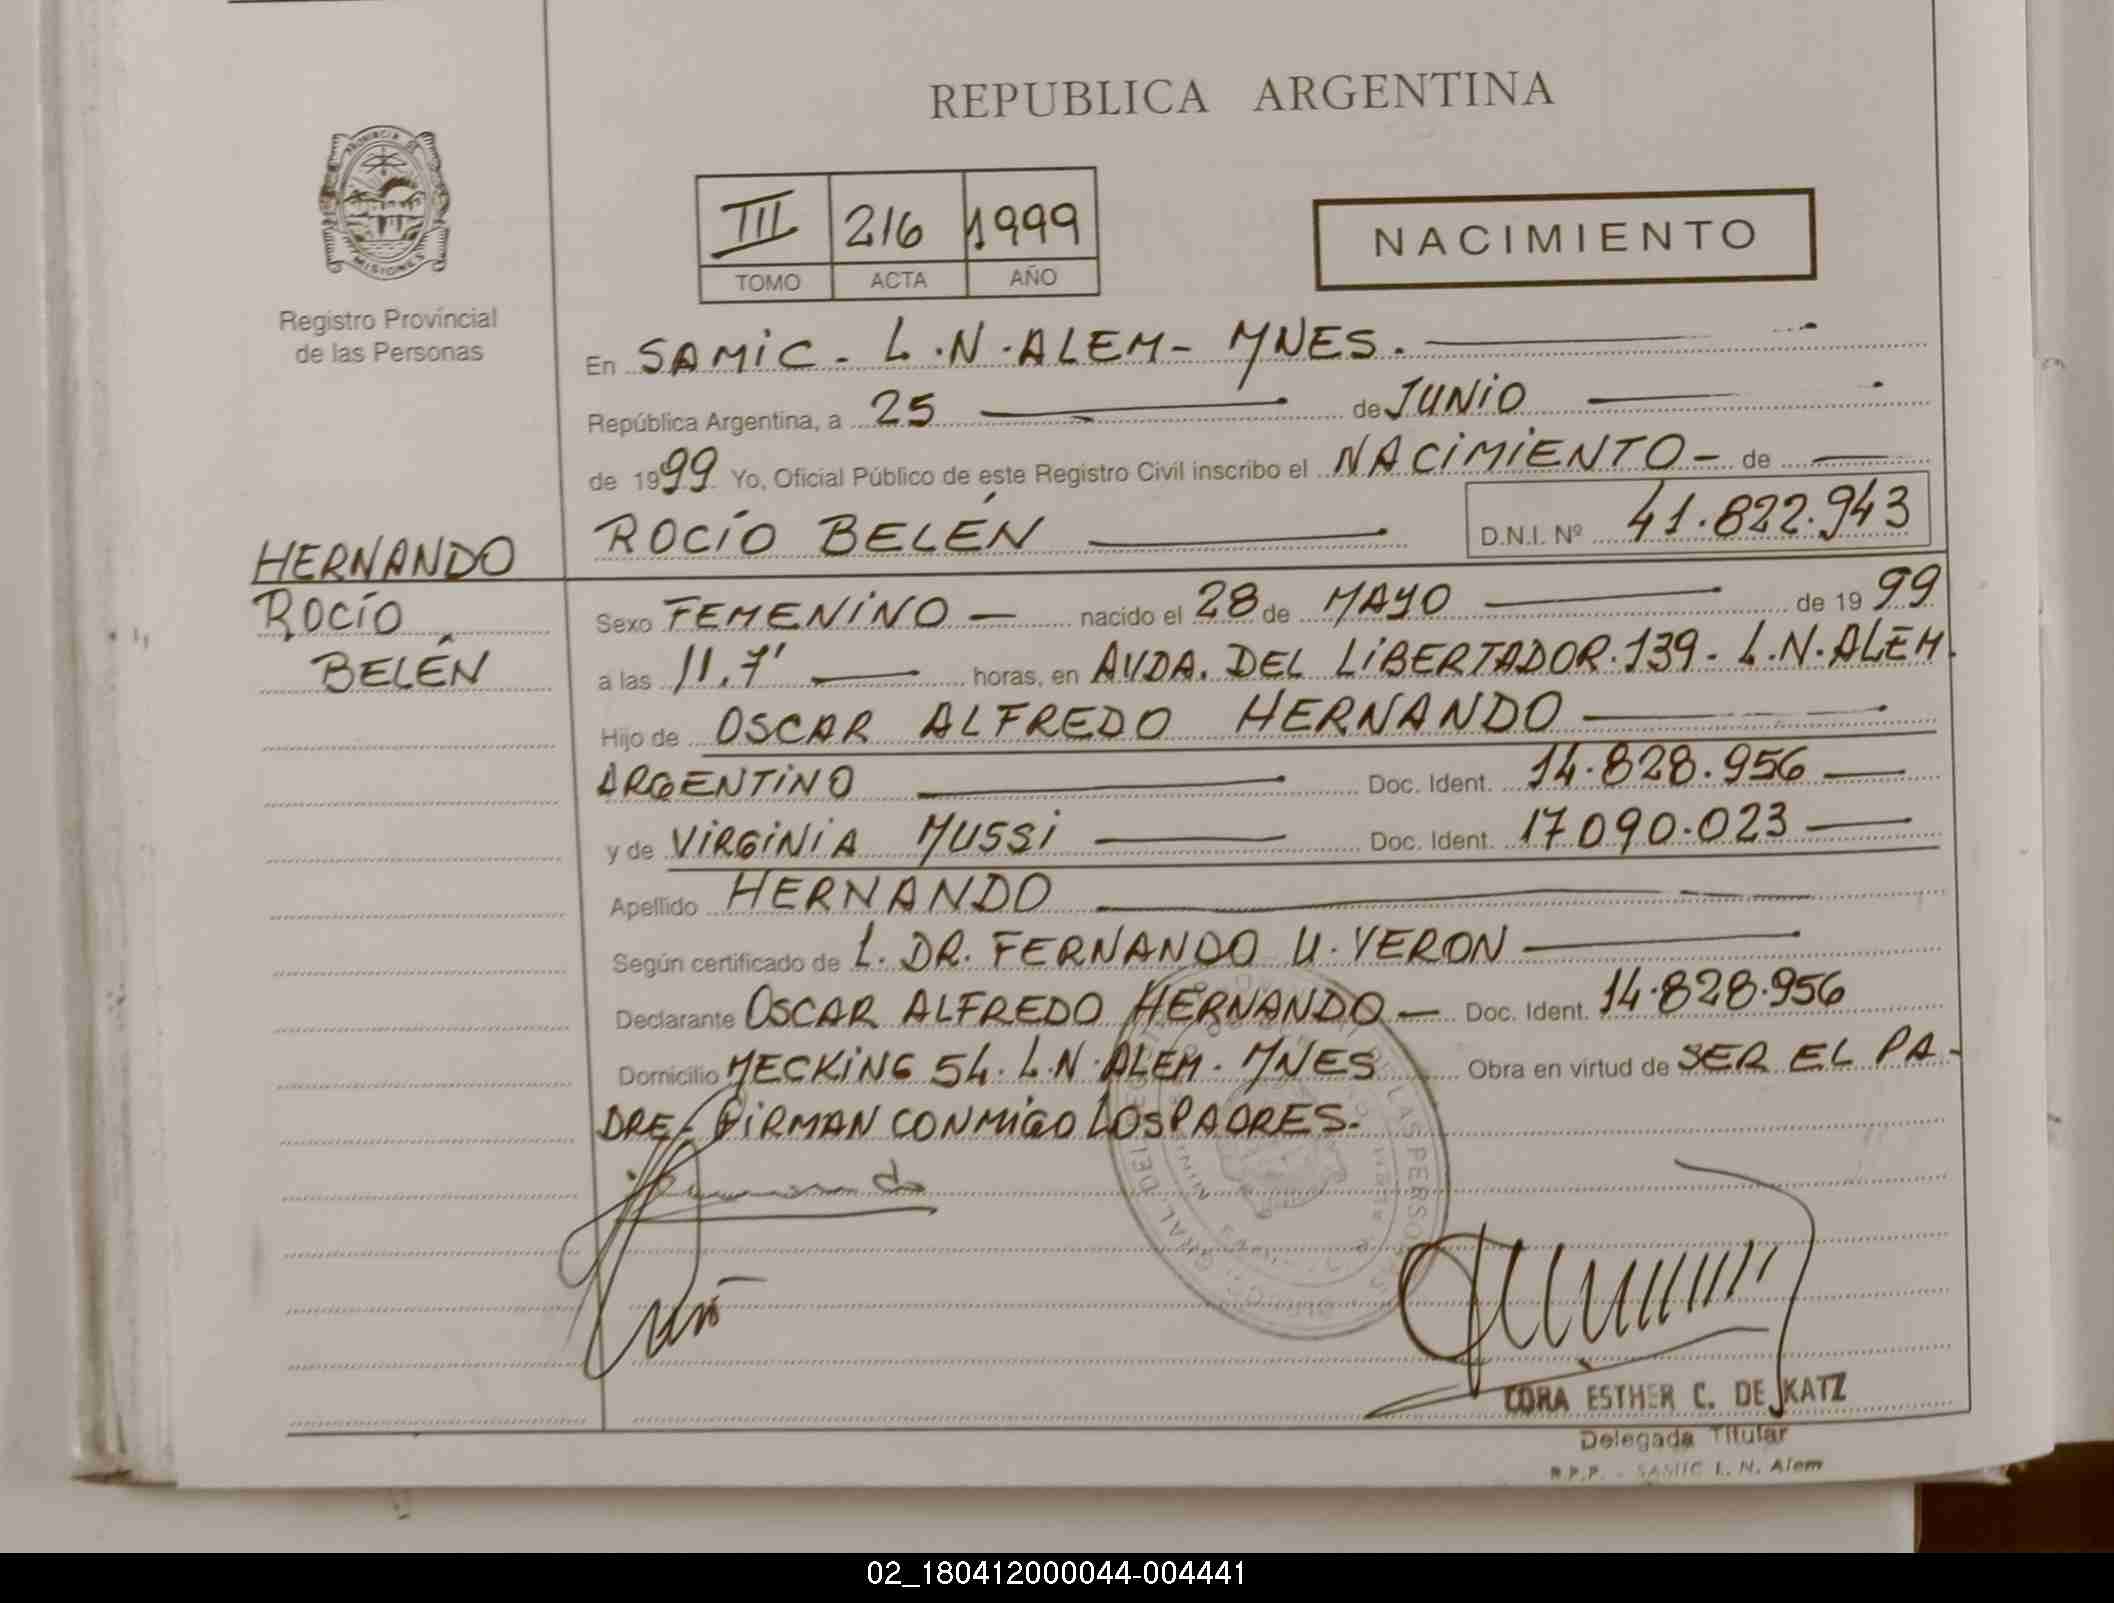 REPUBLICA ARGENTINA
PROVINCIA DE
MISIONES
Registro Provincial
de las Personas
III 216 1999
TOMO ACTA AÑO
NACIMIENTO
En SAMIC - L.N. ALEM - MNES.
República Argentina, a 25 de JUNIO
de 1999 Yo, Oficial Público de este Registro Civil inscribo el NACIMIENTO - de
ROCÍO BELÉN D.N.I. Nº 41.822.943
HERNANDO
ROCÍO
BELÉN
Sexo FEMENINO - nacido el 28 de MAYO de 1999
a las 11.7' horas, en AVDA. DEL LIBERTADOR. 139 - L.N. ALEM.
Hijo de OSCAR ALFREDO HERNANDO
ARGENTINO Doc. Ident. 14.828.956
y de VIRGINIA MUSSI Doc. Ident. 17.090.023
Apellido HERNANDO
Según certificado de L. DR. FERNANDO U. YERON
Declarante OSCAR ALFREDO HERNANDO - Doc. Ident. 14.828.956
Domicilio MECKING 54. L.N. ALEM. MNES Obra en virtud de SER EL PA-
DRE - FIRMAN CONMIGO LOS PADRES.
CORA ESTHER C. DE KATZ
Delegada Titular
R.P.P. - SAMIC L. N. Alem
02_180412000044-004441